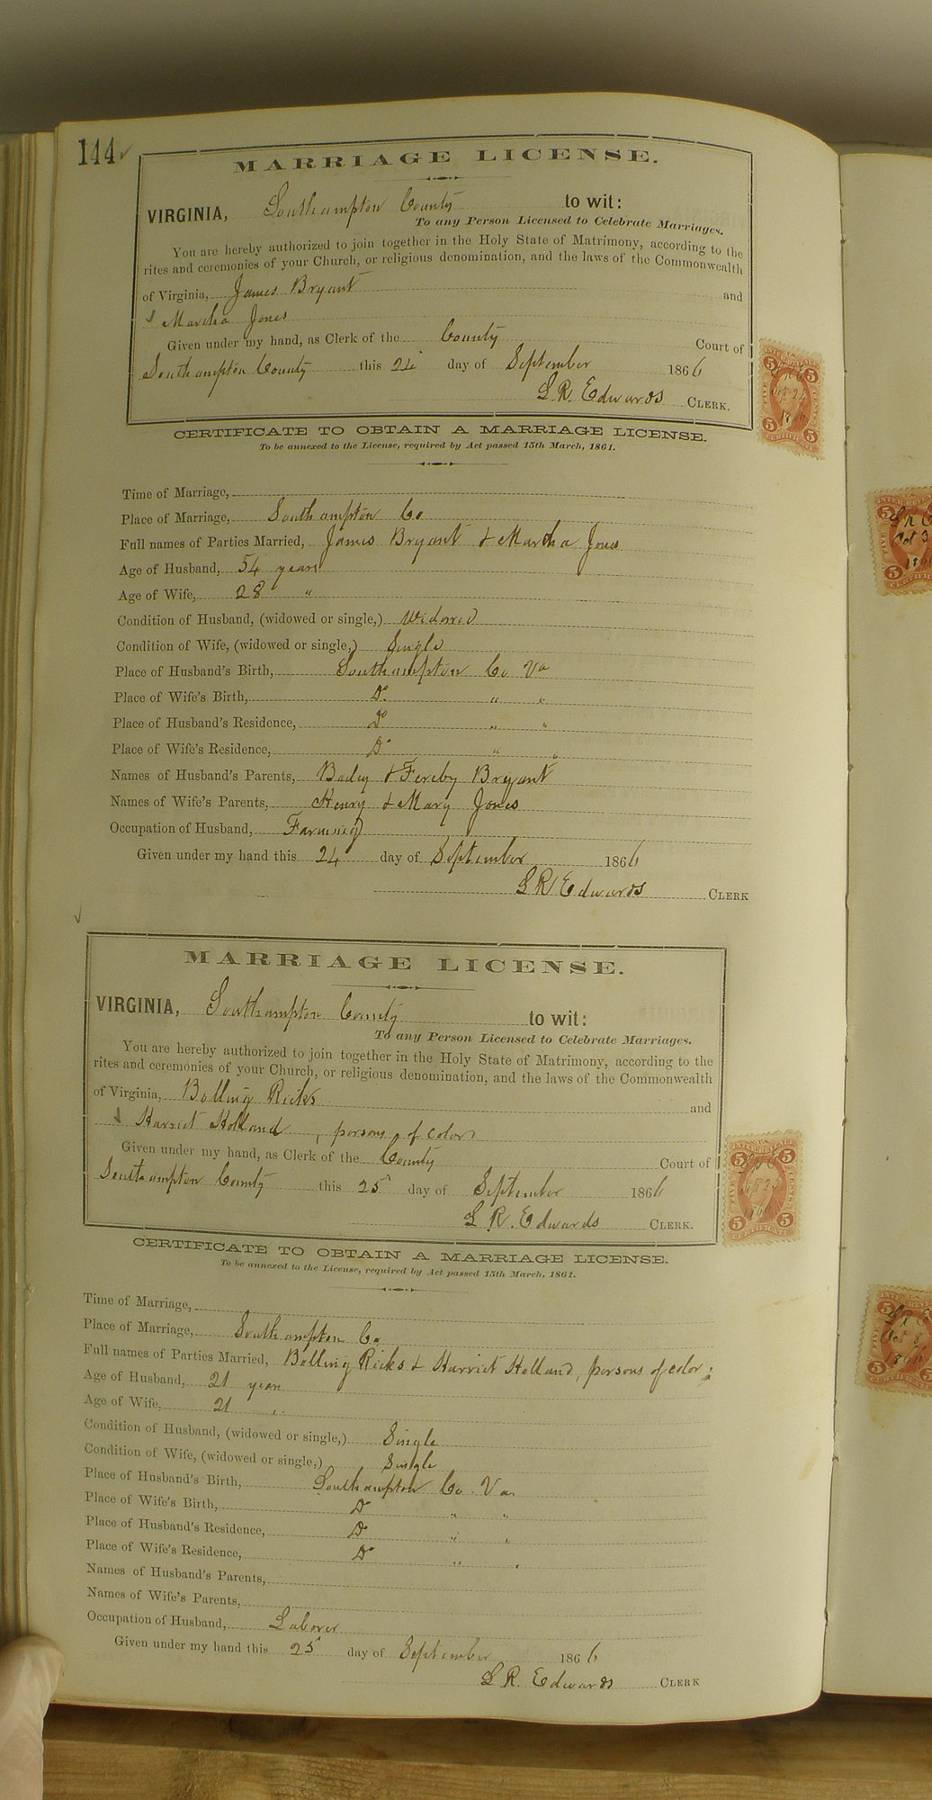 144
MARRIAGE LICENSE.
VIRGINIA, Southampton County to wit:
To any Person Licensed to Celebrate Marriages.
You are hereby authorized to join together in the Holy State of Matrimony, according to the
rites and ceremonies of your Church, or religious denomination, and the laws of the Commonwealth
of Virginia, James Bryant and
Martha Jones
Given under my hand, as Clerk of the County Court of
Southampton County this 24 day of September 1866
L R. Edwards CLERK.
CERTIFICATE TO OBTAIN A MARRIAGE LICENSE.
To be annexed to the License, required by Act passed 15th March, 1861.
Time of Marriage,
Place of Marriage, Southampton Co
Full names of Parties Married, James Bryant & Martha Jones
Age of Husband, 54 years
Age of Wife, 28 "
Condition of Husband, (widowed or single,) Widowed
Condition of Wife, (widowed or single,) Single
Place of Husband's Birth, Southampton Co Va
Place of Wife's Birth, Do " "
Place of Husband's Residence, Do " "
Place of Wife's Residence, Do " "
Names of Husband's Parents, Bailey & Fereby Bryant
Names of Wife's Parents, Henry & Mary Jones
Occupation of Husband, Farming
Given under my hand this 24 day of September 1866
L R Edwards CLERK
MARRIAGE LICENSE.
VIRGINIA, Southampton County to wit:
To any Person Licensed to Celebrate Marriages.
You are hereby authorized to join together in the Holy State of Matrimony, according to the
rites and ceremonies of your Church, or religious denomination, and the laws of the Commonwealth
of Virginia, Bolling Ricks and
Harriet Holland, persons of color
Given under my hand, as Clerk of the County Court of
Southampton County this 25 day of September 1866
L R. Edwards CLERK.
CERTIFICATE TO OBTAIN A MARRIAGE LICENSE.
To be annexed to the License, required by Act passed 15th March, 1861.
Time of Marriage,
Place of Marriage, Southampton Co
Full names of Parties Married, Bolling Ricks & Harriet Holland, persons of color;
Age of Husband, 21 years
Age of Wife, 21 "
Condition of Husband, (widowed or single,) Single
Condition of Wife, (widowed or single,) Single
Place of Husband's Birth, Southampton Co Va
Place of Wife's Birth, Do " "
Place of Husband's Residence, Do " "
Place of Wife's Residence, Do " "
Names of Husband's Parents,
Names of Wife's Parents,
Occupation of Husband, Laborer
Given under my hand this 25 day of September 1866
L R. Edwards CLERK